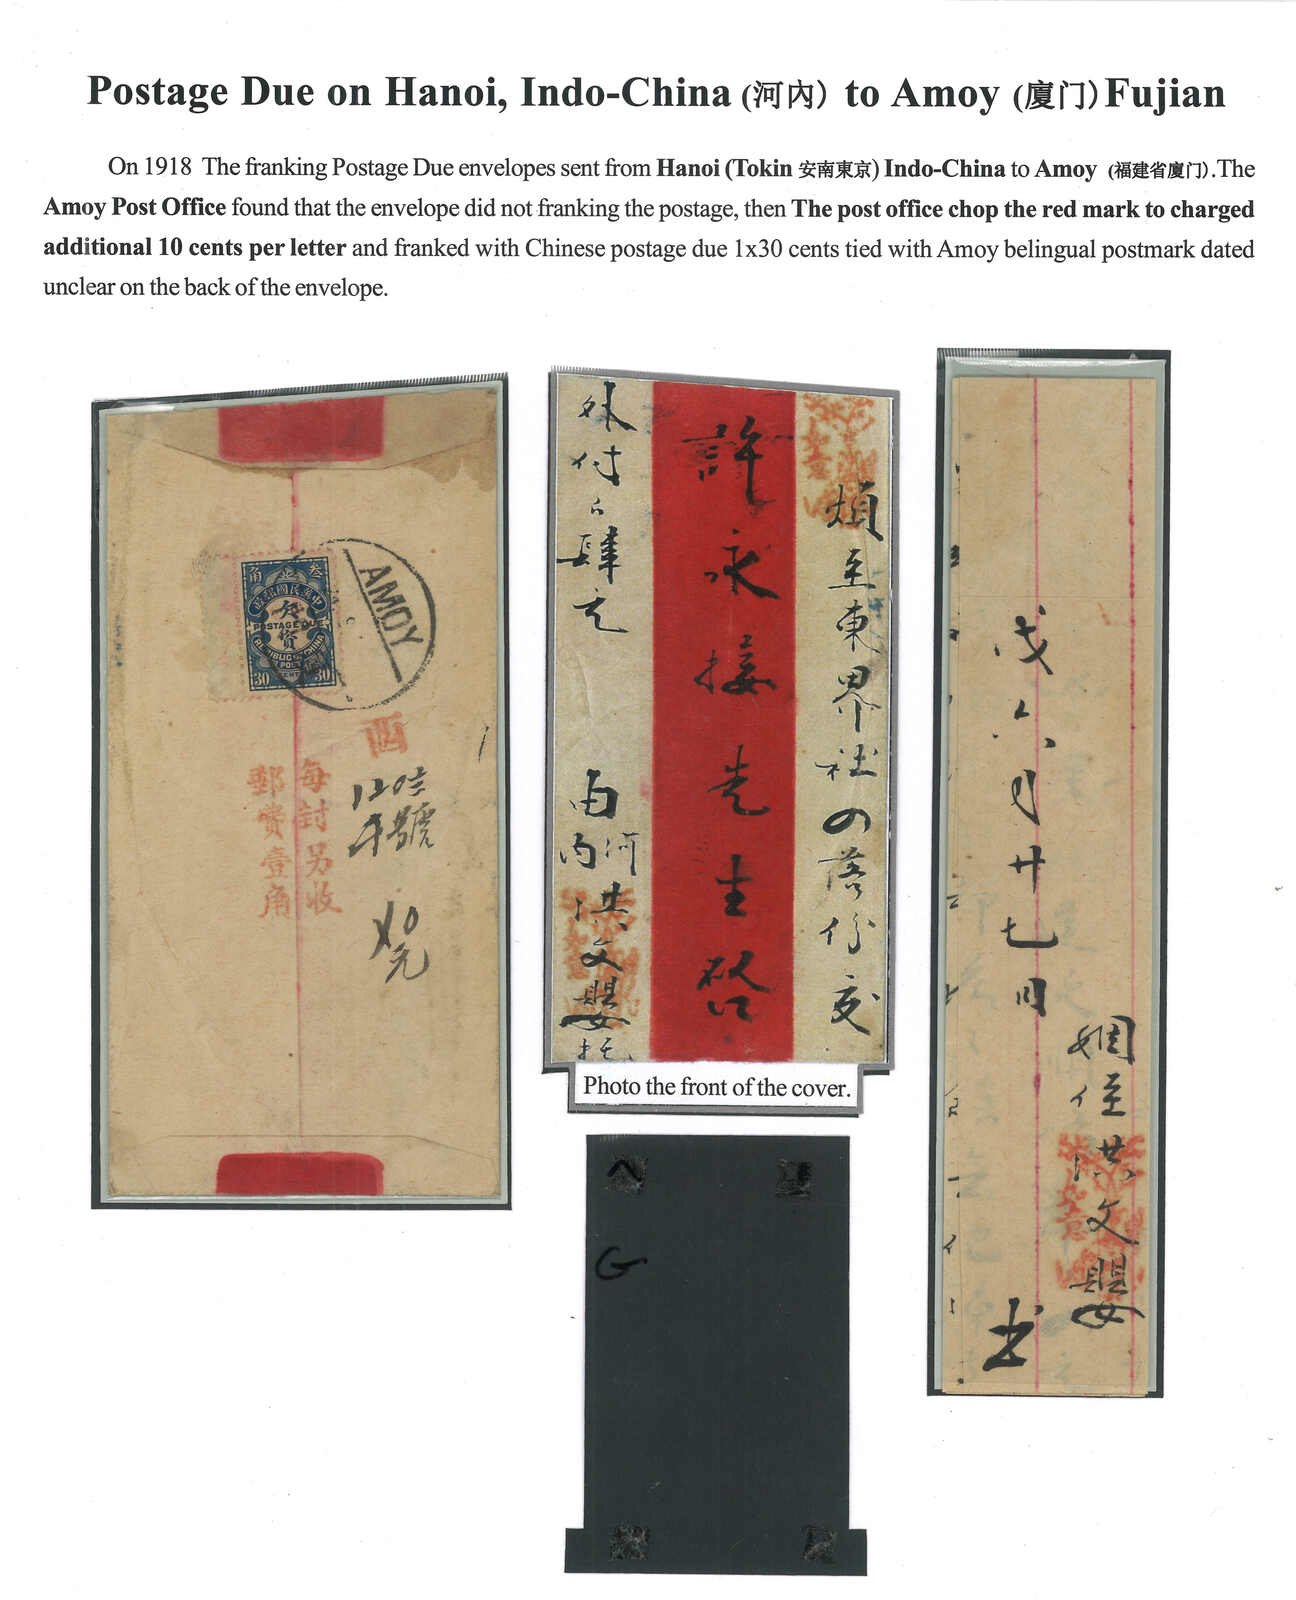 Postage Due on Hanoi, Indo-China (河內) to Amoy (廈门) Fujian
On 1918 The franking Postage Due envelopes sent from Hanoi (Tokin 安南東京) Indo-China to Amoy (福建省廈门).The
Amoy Post Office found that the envelope did not franking the postage, then The post office chop the red mark to charged
additional 10 cents per letter and franked with Chinese postage due 1x30 cents tied with Amoy belingual postmark dated
unclear on the back of the envelope.
角 叁
政郵國民華中
欠
POSTAGE DUE
資
REPUBLIC OF CHINA
POST
30 CENTS 30
AMOY
酉
每封另收
郵費壹角
號
元
煩至東界社の落份交
許永接先生啟
外付艮肆元
由河内洪文賜托
Photo the front of the cover.
戊六月廿七日
姻侄洪文
书
G